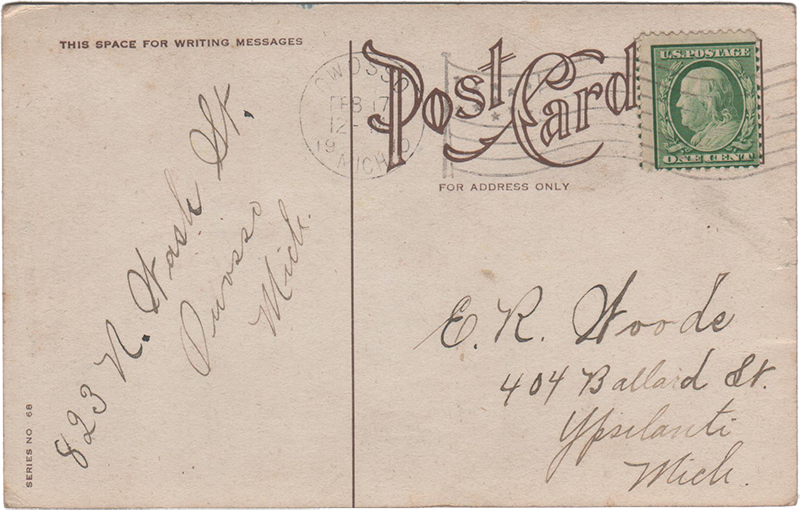 THIS SPACE FOR WRITING MESSAGES
Post Card
FOR ADDRESS ONLY
OWOSSO
FEB 17
12-
1910
MICH
U.S. POSTAGE
ONE CENT
823 N. Wash St.
Owosso
Mich.
E. R. Woods
404 Ballard St.
Ypsilanti
Mich.
SERIES NO 68